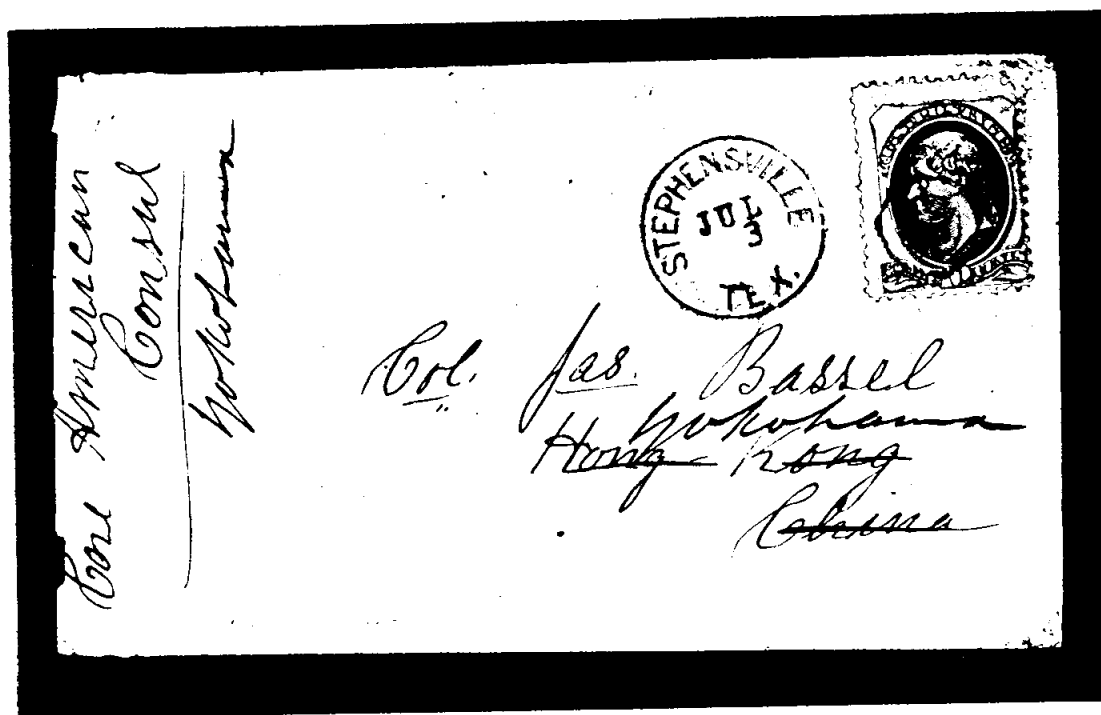 Care American
Consul
Yokohama
STEPHENSVILLE
JUL
3
TEX.
Col. Jas. Bassel
Yokohama
Hong Kong
China